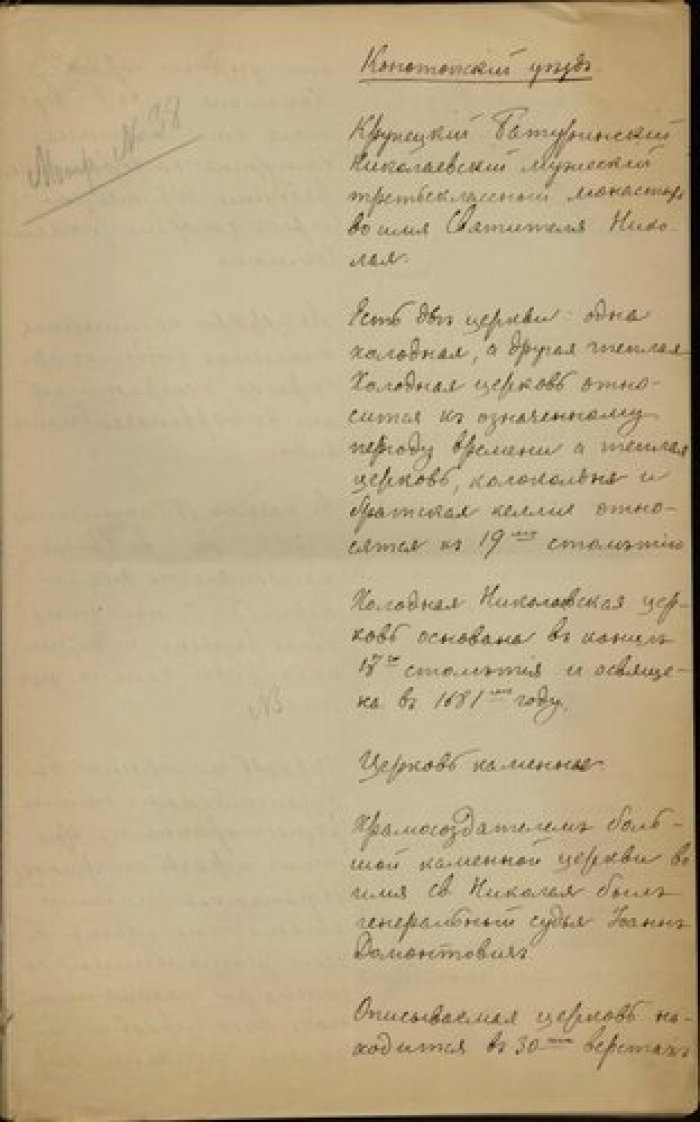 Конотопскій уѣздъ.
Метр. N 28
Крупецкій Батуринскій
Николаевскій мужескій
третьеклассный монастырь
во имя Святителя Нико-
лая.
Есть двѣ церкви: одна
холодная, а другая теплая
Холодная церковь отно-
сится къ означенному
періоду времени а теплая
церковь, колокольня и
братская келлие отно-
сятся къ 19му столѣтію
Холодная Николаевская цер-
ковь основана въ концѣ
17го столѣтія и освяще-
на въ 1681мъ году.
Церковь каменная.
Храмосоздателемъ боль-
шой каменной церкви во
имя св Николая былъ
генеральный судья Іоаннъ
Домонтовичъ.
Описываемая церковь на-
ходится въ 30ти верстахъ